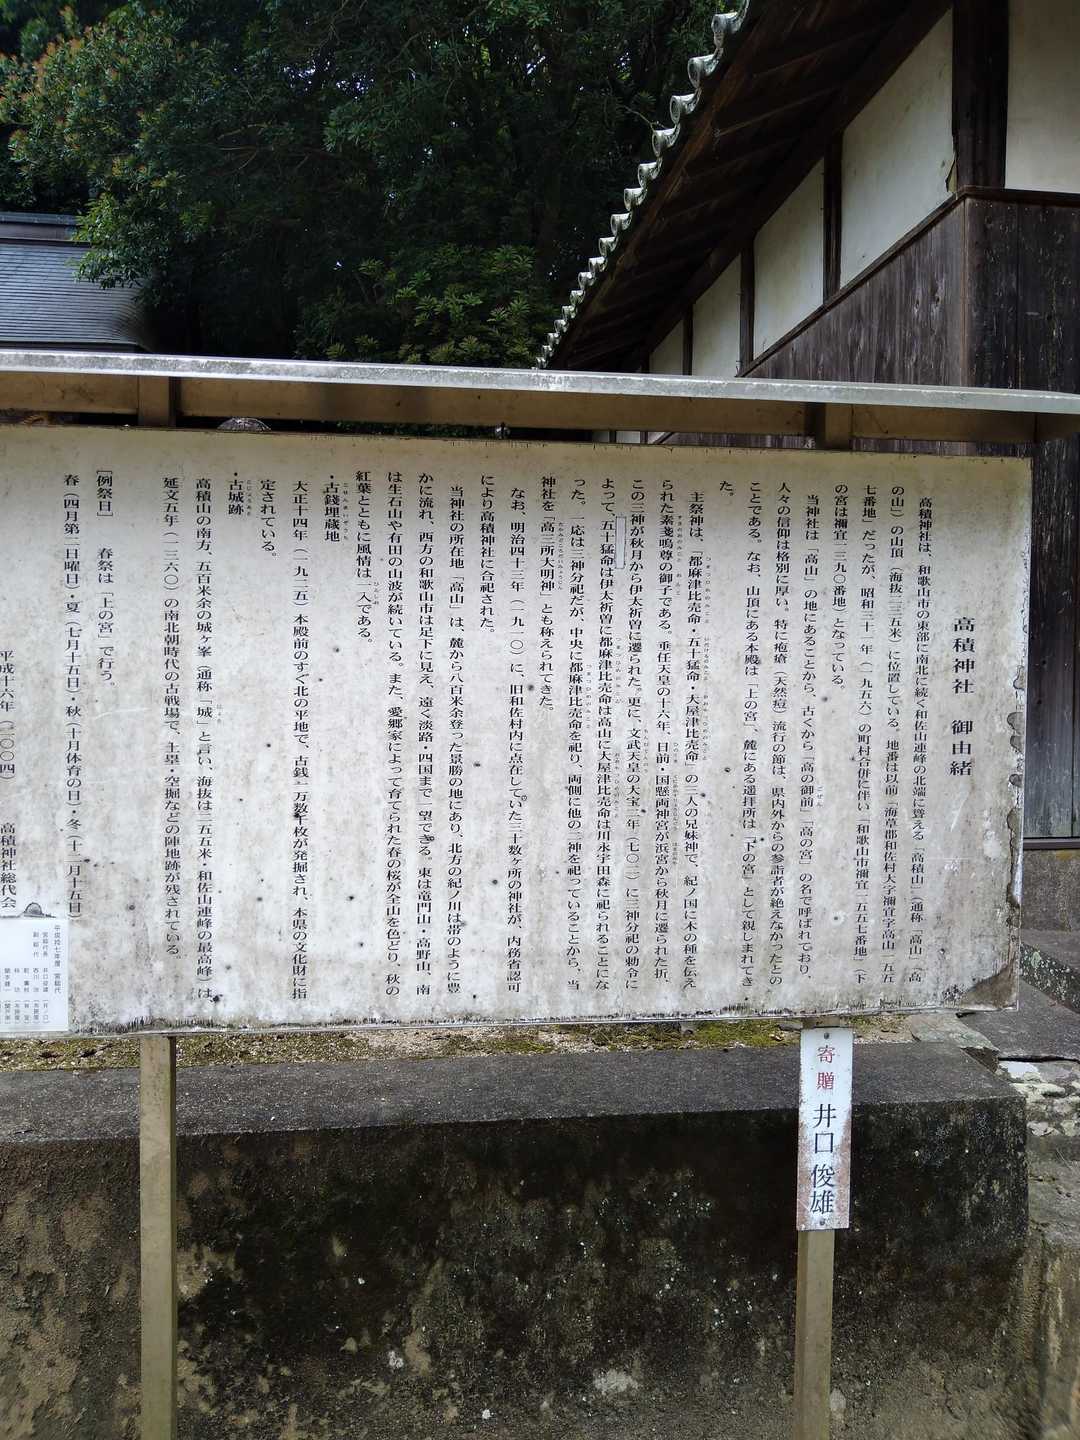 高積神社　御由緒
高積神社は、和歌山市の東部に南北に続く和佐山連峰の北端に聳える「高積山」（通称「高山」「高
の山」）の山頂（海抜二三五米）に位置している。地番は以前「海草郡和佐村大字禰宜字高山一五五
七番地」だったが、昭和三十一年（一九五六）の町村合併に伴い「和歌山市禰宜一五五七番地」（下
の宮は禰宜一三九〇番地）となっている。
当神社は「高山」の地にあることから、古くから「高の御前」「高の宮」の名で呼ばれており、
人々の信仰は格別に厚い。特に疱瘡（天然痘）流行の節は、県内外からの参詣者が絶えなかったとの
ことである。なお、山頂にある本殿は「上の宮」、麓にある遥拝所は「下の宮」として親しまれてき
た。
主祭神は、「都麻津比売命・五十猛命・大屋津比売命」の三人の兄妹神で、紀ノ国に木の種を伝え
られた素戔嗚尊の御子である。垂仁天皇の十六年、日前・国懸両神宮が浜宮から秋月に遷られた折、
この三神が秋月から伊太祈曽に遷られた。更に、文武天皇の大宝二年（七〇二）に三神分祀の勅令に
よって、五十猛命は伊太祈曽に都麻津比売命は高山に大屋津比売命は川永宇田森に祀られることにな
った。一応は三神分祀だが、中央に都麻津比売命を祀り、両側に他の二神を祀っていることから、当
神社を「高三所大明神」とも称えられてきた。
なお、明治四十三年（一九一〇）に、旧和佐村内に点在していた三十数ヶ所の神社が、内務省認可
により高積神社に合祀された。
当神社の所在地「高山」は、麓から八百米余登った景勝の地にあり、北方の紀ノ川は帯のように豊
かに流れ、西方の和歌山市は足下に見え、遠く淡路・四国まで一望できる。東は竜門山・高野山、南
は生石山や有田の山波が続いている。また、愛郷家によって育てられた春の桜が全山を色どり、秋の
紅葉とともに風情は一入である。
・古銭埋蔵地
大正十四年（一九二五）本殿前のすぐ北の平地で、古銭一万数千枚が発掘され、本県の文化財に指
定されている。
・古城跡
高積山の南方、五百米余の城ヶ峯（通称「城」と言い、海抜は二五五米・和佐山連峰の最高峰）は、
延文五年（一三六〇）の南北朝時代の古戦場で、土塁・空掘などの陣地跡が残されている。
［例祭日］　春祭は「上の宮」で行う。
春（四月第二日曜日）・夏（七月十五日）・秋（十月体育の日）・冬（十二月十五日）
平成十六年（二〇〇四）　高積神社総代会
平成拾七年度　宮総代
寄贈　井口俊雄